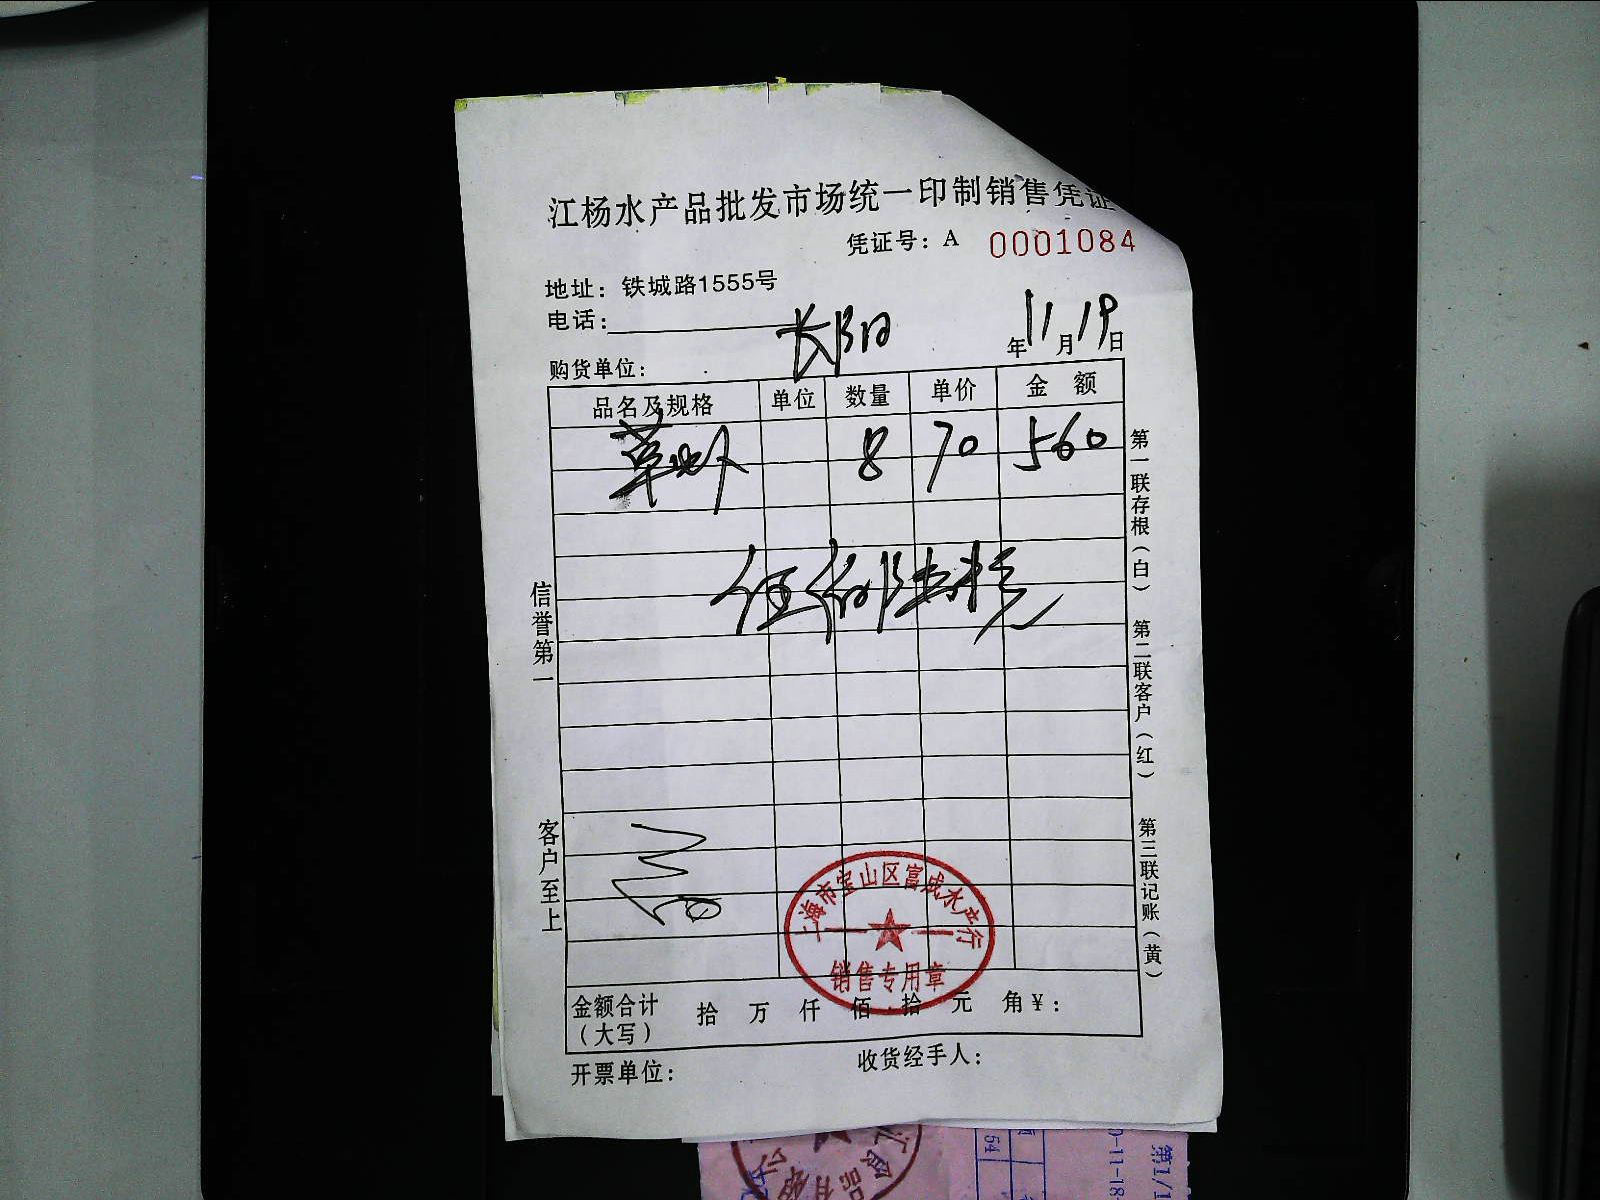 江杨水产品批发市场统一印制销售凭证
凭证号：A 0001084
地址：铁城路1555号
电话：
购货单位： 长阳 年11月19日
品名及规格 单位 数量 单价 金额
草虾 8 70 560
伍佰陆拾元
信誉第一
客户至上
第一联存根（白）
第二联客户（红）
第三联记账（黄）
上海市宝山区富成水产行
销售专用章
金额合计（大写） 拾 万 仟 佰 拾 元 角 ¥：
开票单位： 收货经手人：
64
0-11-18
第1/1